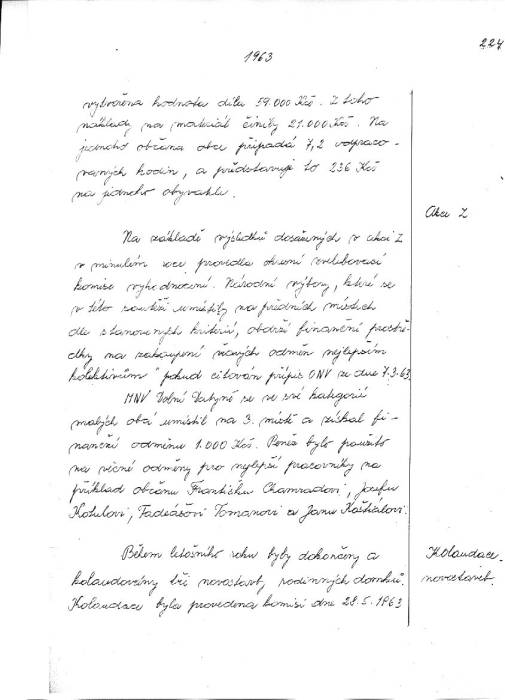 224
1963
vytvořena hodnota díla 59.000 Kčs. Z toho
náklady na materiál činily 21.000 Kčs. Na
jednoho občana obce připadá 7,2 odpraco-
vaných hodin, a představuje to 236 Kčs
na jednoho obyvatele.
Akce Z
Na základě výsledků dosažených v akci Z
v minulém roce provedla okresní
komise vyhodnocení. Národní výbory, které se
v této soutěži umístily na předních místech
dle stanovených kriterií, obdrží finanční prostře-
dky na zakoupení věcných odměn nejlepším
kolektivům" pokud citován přípis ONV ze dne 7.3.63.
MNV Dolní se ve své kategorii
malých obcí umístil na 3. místě a získal fi-
nanční odměnu 1.000 Kčs. Peněz bylo použito
na věcné odměny pro nejlepší pracovníky na
příklad občanu Františku Chamradovi, Josefu
Kotulovi, Tadeášovi Tomanovi a Janu Kaštialovi.
Během letošního roku byly dokončeny a
Kolaudace
kolaudovány tři novostavby rodinných domků.
novostaveb.
Kolaudace byla provedena komisí dne 28.5.1963